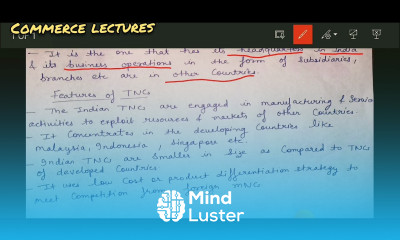 COMMERCE LECTURES
1 of 1
- It is the one that has its headquarters in India
& its business operations in the form of subsidiaries,
branches etc are in other Countries.
Features of TNCs
- The Indian TNCs are engaged in manufacturing & Service
activities to exploit resources & markets of other Countries.
- It Concentrates in the developing Countries like
Malaysia, Indonesia, Singapore etc.
- Indian TNCs are Smaller in Size as Compared to TNCs
of developed Countries.
- It uses low Cost or product differentiation strategy to
meet Competition from foreign MNC
Mind
Luster